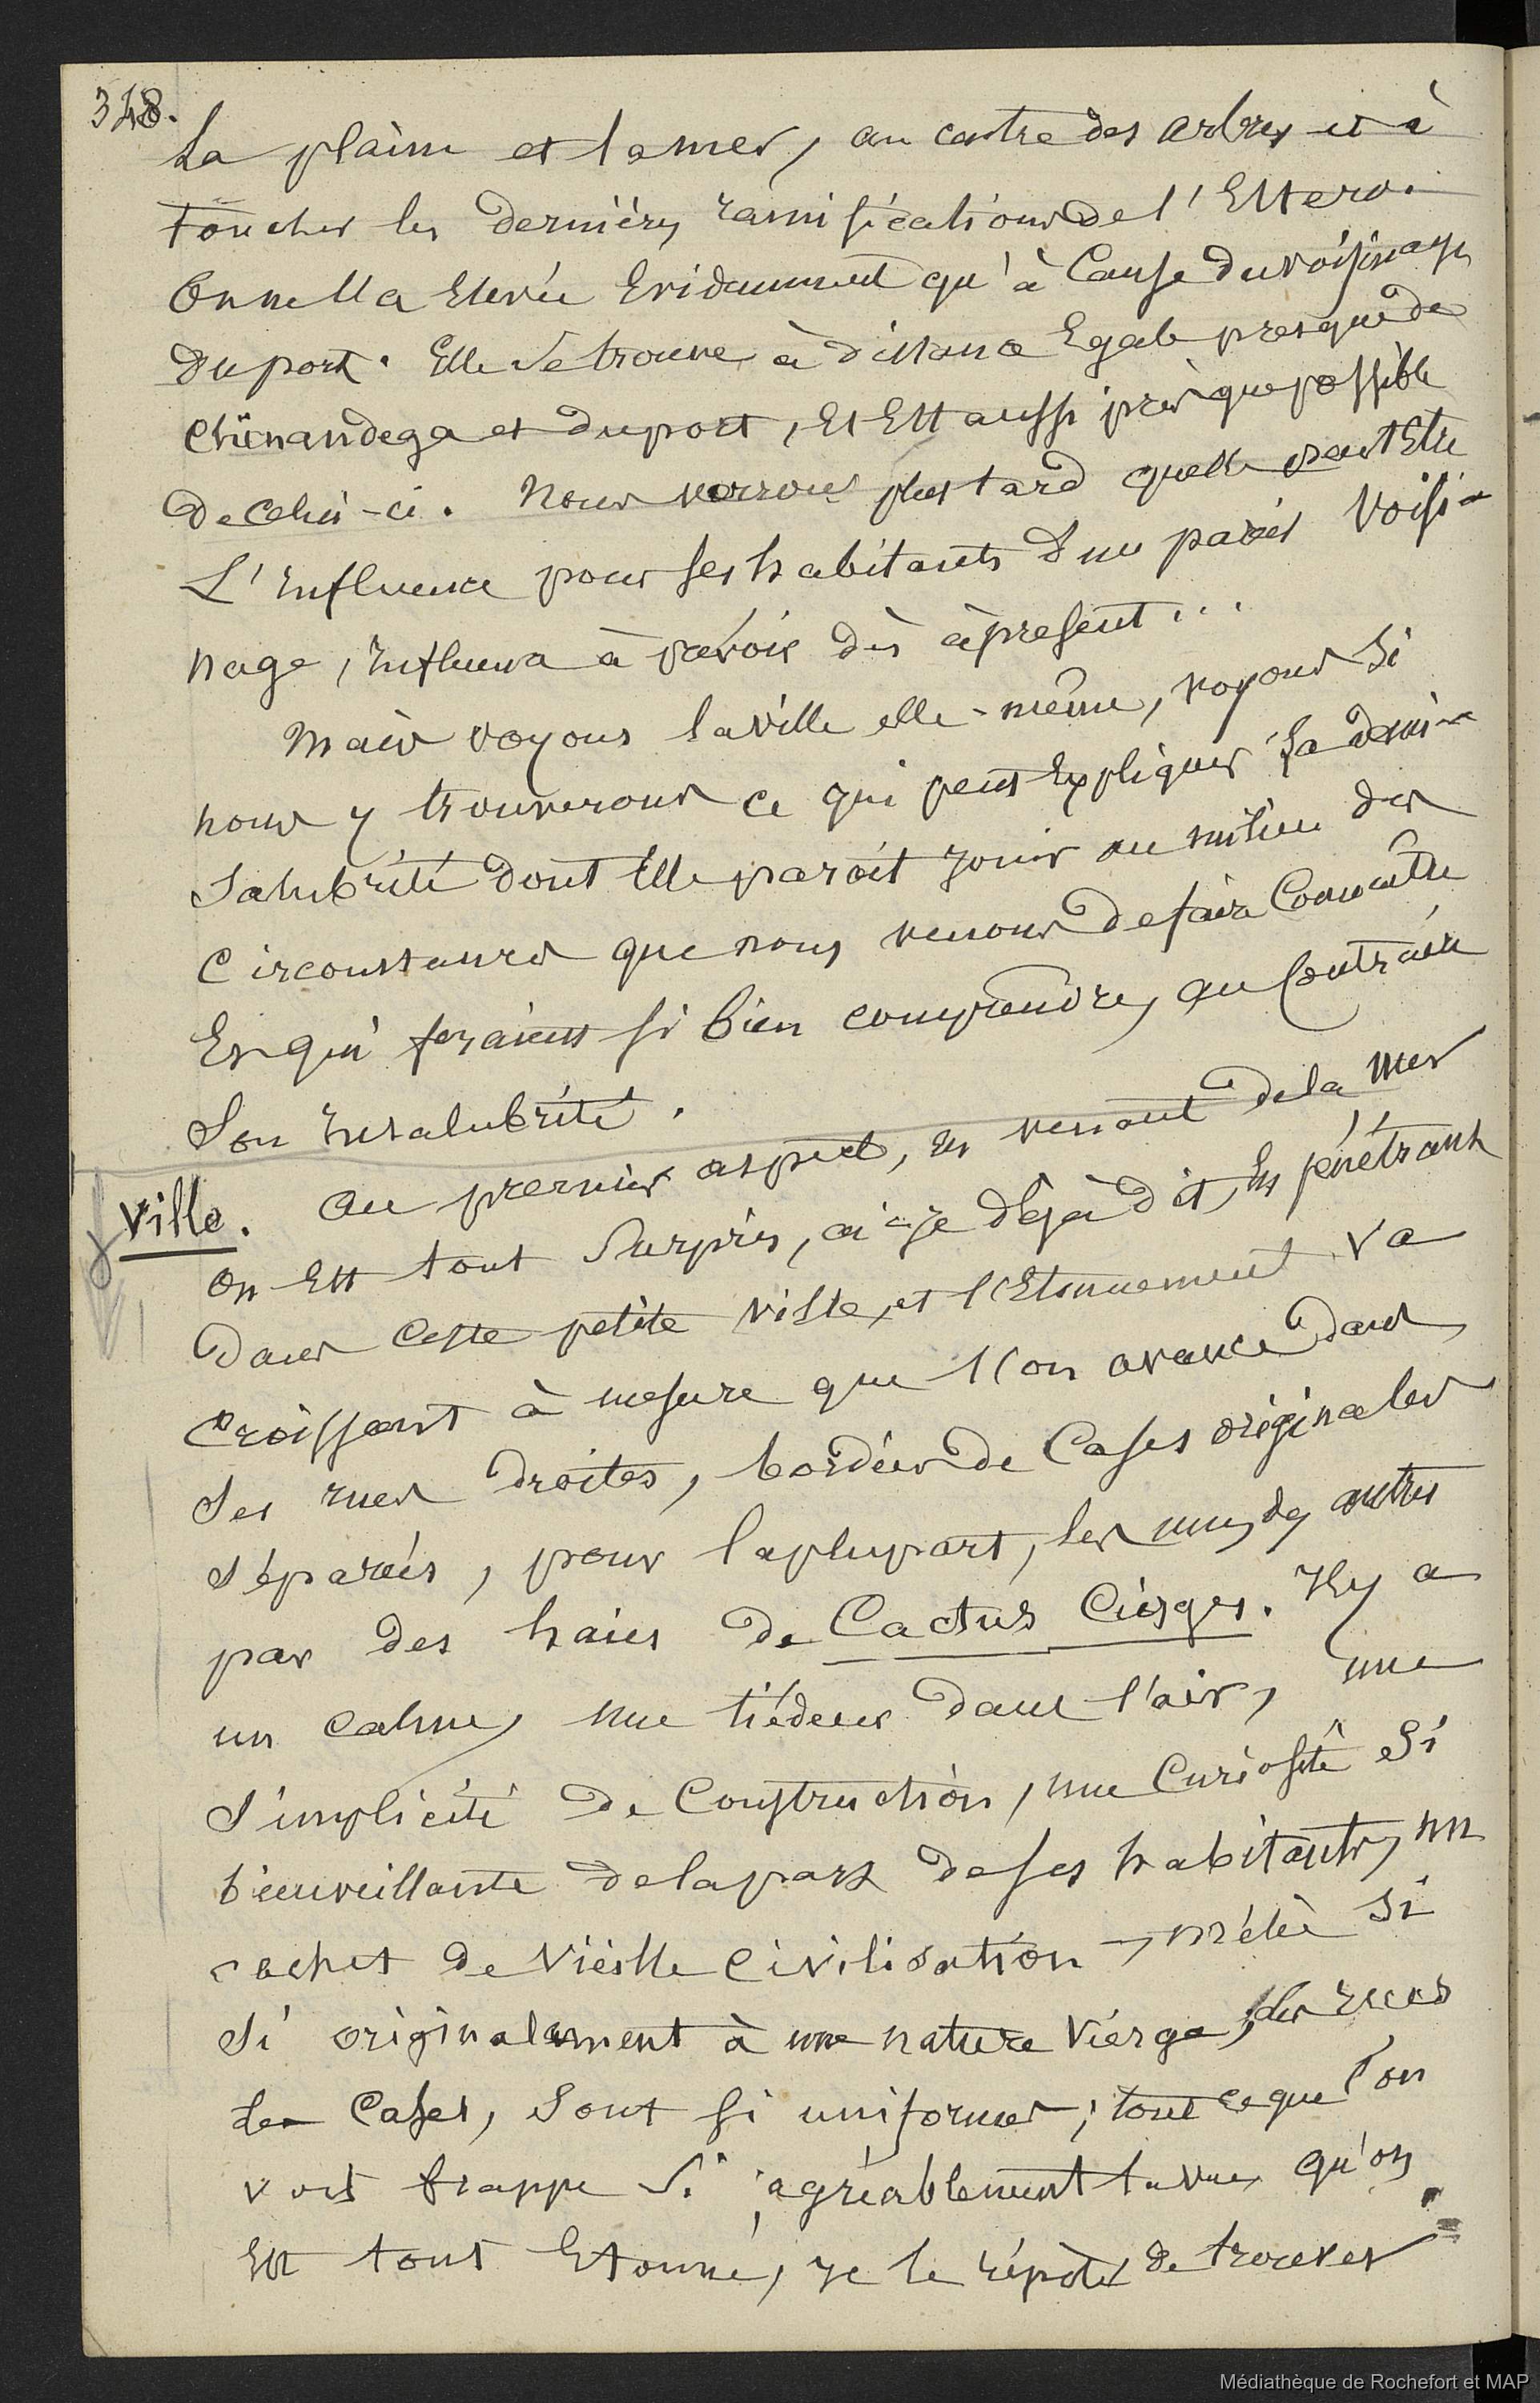 348.
La plaine et la mer, au centre des arbres et à
toucher les dernières ramifications de l'Estero.
On ne l'a Elevée Evidemment qu'à Cause du voisinage
du port. Elle se trouve à distance Egale presque de
Chinandega et du port, Et Est aussi près que possible
de celui-ci. Nous verrons plus tard quelle peut Etre
L'Influence pour ses habitants d'un pareil voisi-
nage, Influence à prévoir dès à présent...
Mais voyons la ville elle-même, voyons si
nous y trouverons ce qui peut Expliquer la demi-
Salubrité dont Elle paroit jouir au milieu des
Circonstances que nous venons de faire Connoître
Et qui feraient si bien comprendre, au Contraire
Son Insalubrité.
Ville. Au premier aspect, en venant de la mer
on Est tout Surpris, ai-je déjà dit, En pénétrant
Dans Cette petite ville, et l'Etonnement va
Croissant à mesure que l'on avance dans
Ses rues droites, bordées de Cases originales
Séparées, pour la plupart, les unes des autres
par des haies de Cactus Cierges. Il y a
un calme, une tiédeur dans l'air, une
Simplicité de Construction, une Curiosité Si
bienveillante de la part de ses habitants, un
cachet de Vieille Civilisation mêlée Si
Si originalement à une nature Vierge, les rues
les Cases, Sont si uniformes; tout ce que l'on
voit frappe Si agréablement la vue, qu'on
Est tout Etonné, je le répète, de trouver
Médiathèque de Rochefort et MAP